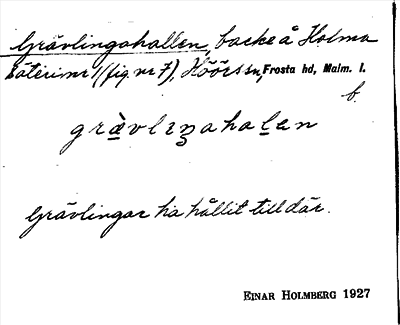 Grävlingahallen, backe å Holma
Säteri nr 1 (fig. nr 7), Höörs sn, Frosta hd, Malm. l.
b.
grævlıŋahalen
Grävlingar ha hållit till där.
EINAR HOLMBERG 1927